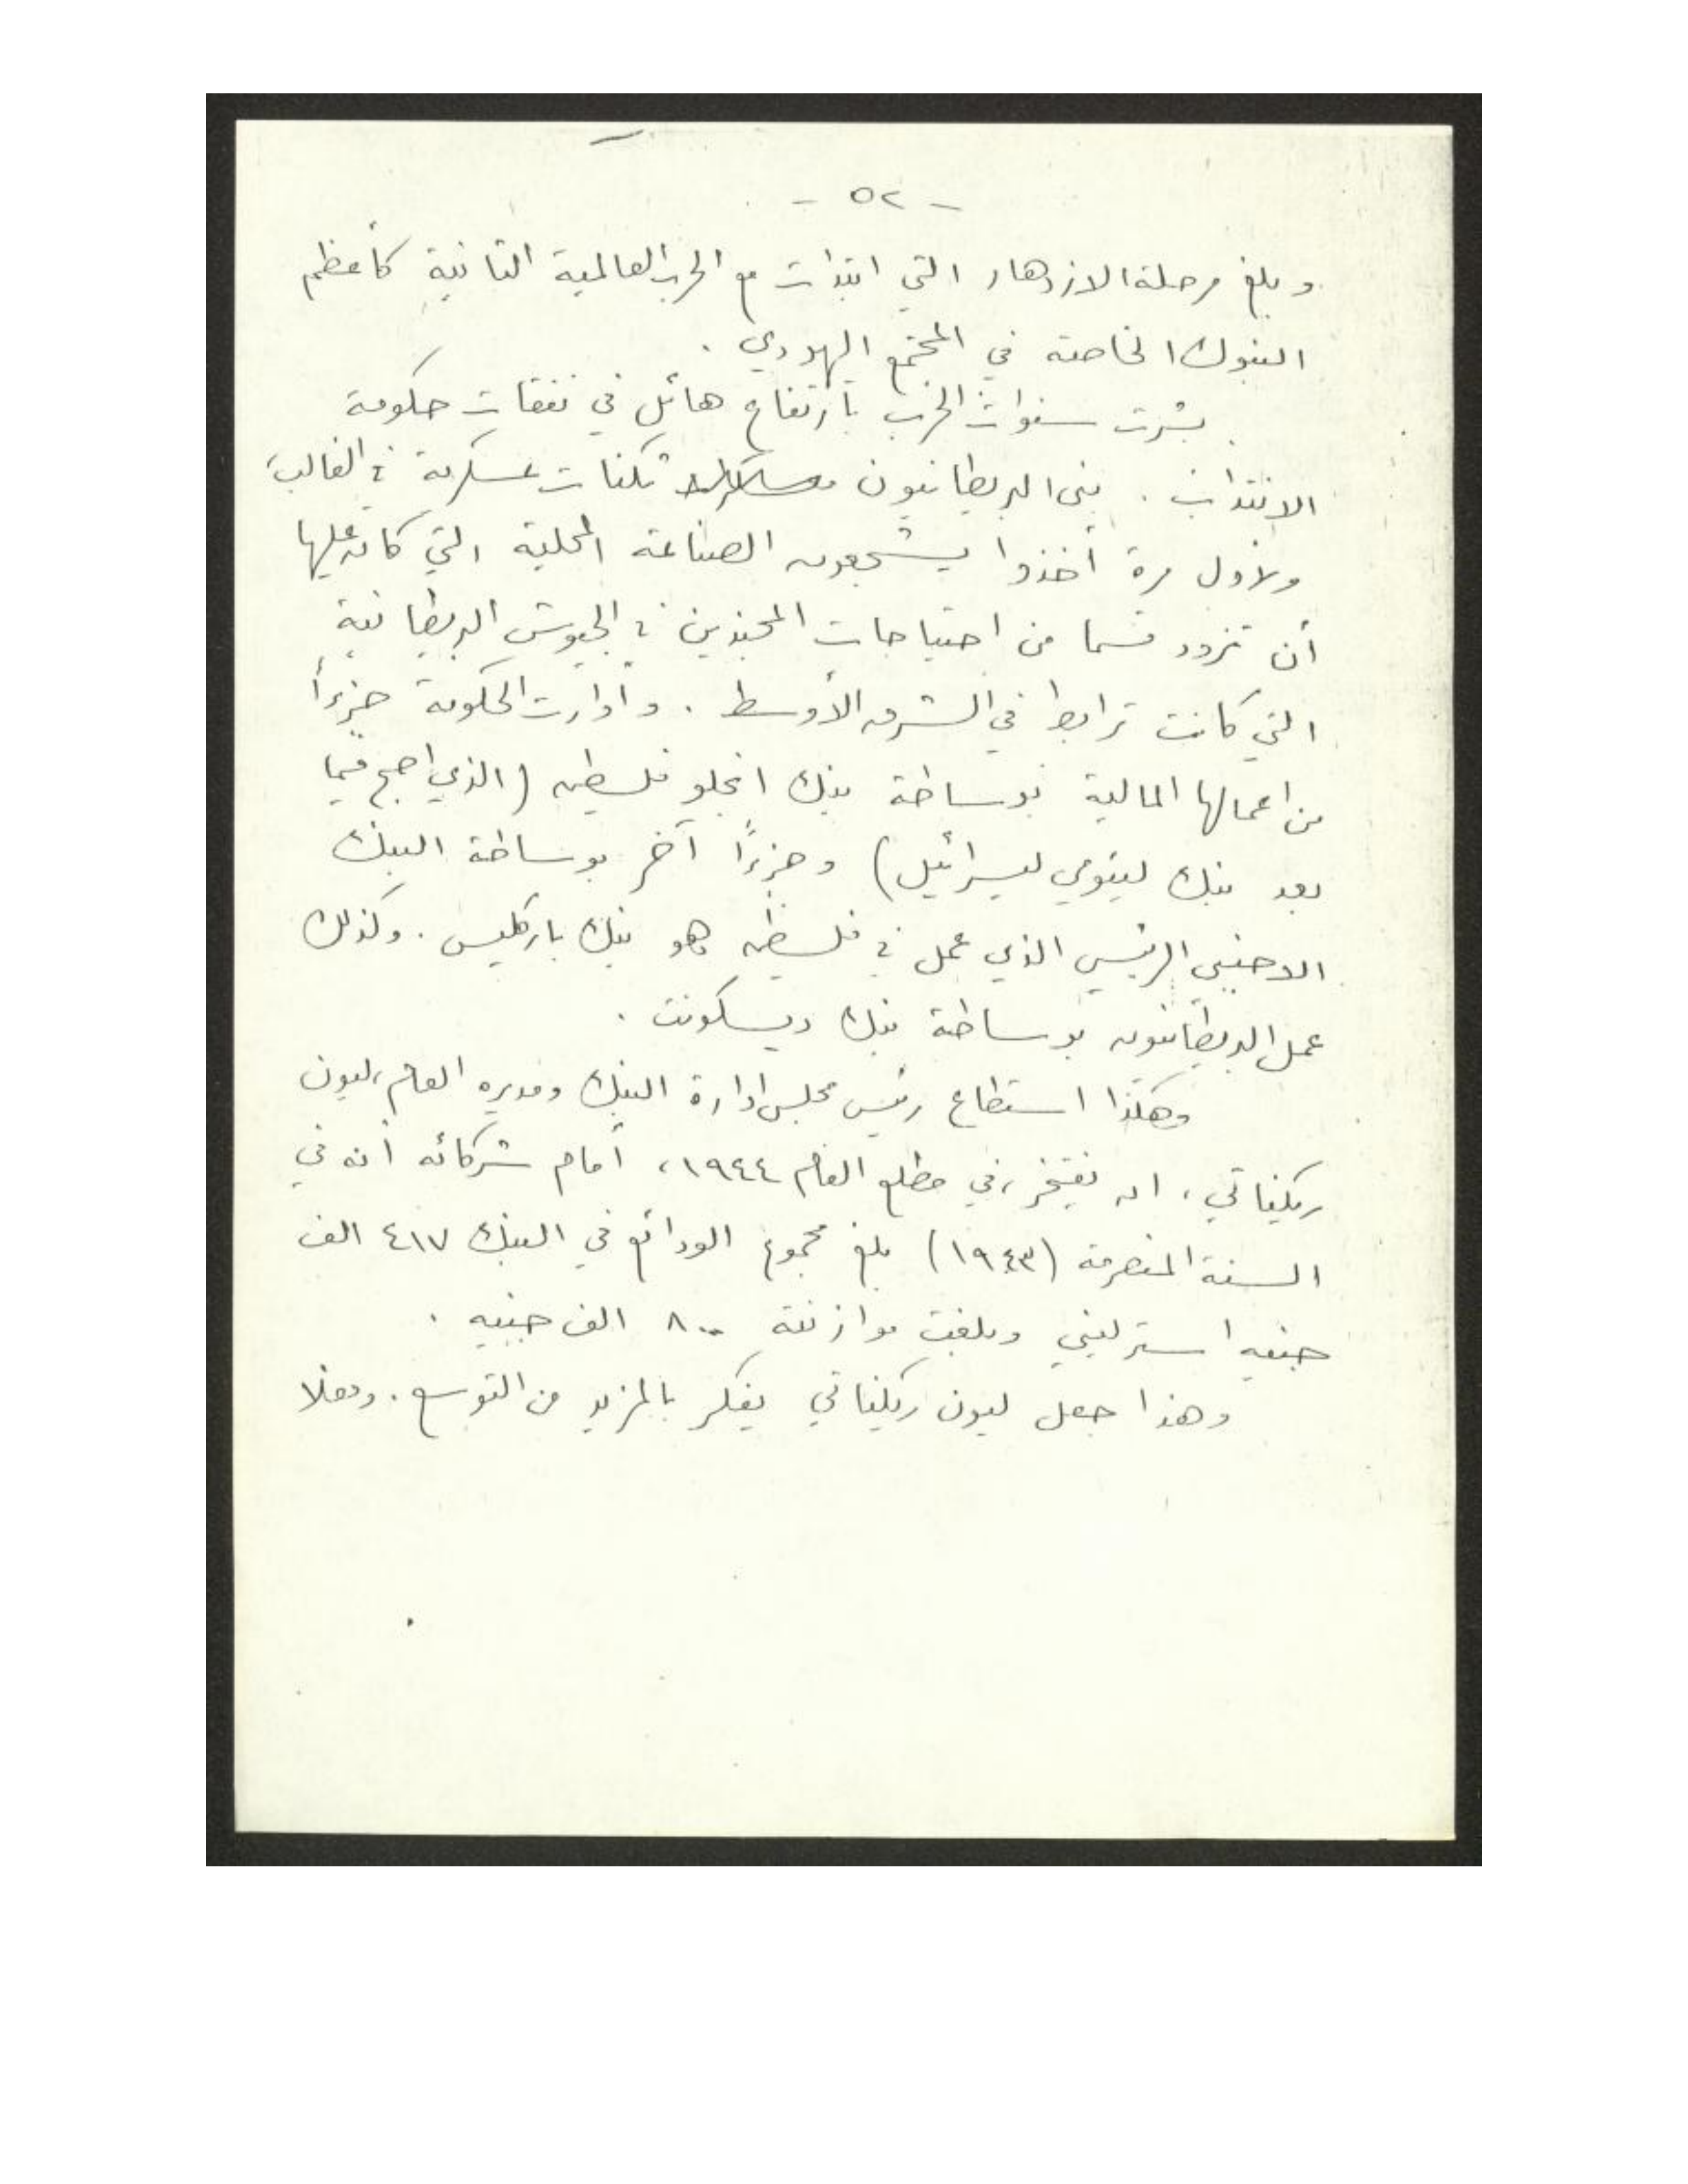 - ٥٢ -
وبلغ مرحلة الازدهار التي ابتدأت مع الحرب العالمية الثانية كأعظم
البنوك الخاصة في المجتمع اليهودي .
بشرت سنوات الحرب بأرتفاع هائل في نفقات حكومة
الانتداب . بنى البريطانيون ثكنات عسكرية في الغالب،
ولأول مرة أخذوا يشجعون الصناعة المحلية التي كان عليها
أن تزود قسما من احتياجات المجندين في الجيوش البريطانية
التي كانت ترابط في الشرق الأوسط . وأدارت الحكومة جزءاً
من اعمالها المالية بوساطة بنك انجلو فلسطين (الذي اصبح فيما
بعد بنك ليئومي ليسرائيل) وجزءاً آخر بوساطة البنك
الاجنبي الرئيسي الذي عمل في فلسطين وهو بنك باركليس . وكذلك
عمل البريطانيون بوساطة بنك ديسكونت .
وهكذا استطاع رئيس مجلس ادارة البنك ومديره العام، ليون
ريكيناتي، ان يفتخر، في مطلع العام ١٩٤٤، أمام شركائه أنه في
السنة المنصرمة (١٩٤٣) بلغ مجموع الودائع في البنك ٤١٧ الف
جنيه استرليني وبلغت موازنته ٨٠٠ الف جنيه .
وهذا جعل ليون ريكيناتي يفكر بالمزيد من التوسع . وفعلا